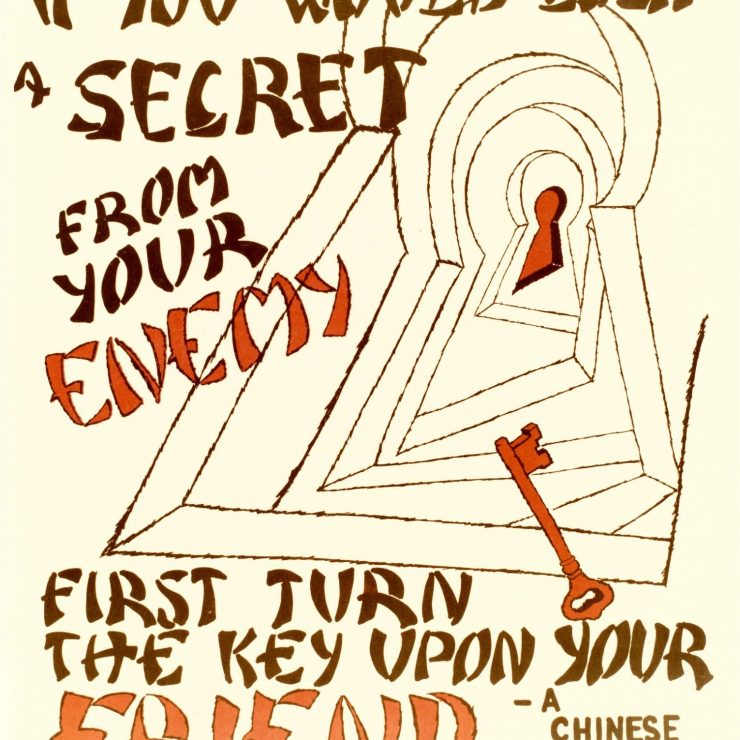 IF YOU WOULD
A SECRET
FROM
YOUR
ENEMY
FIRST TURN
THE KEY UPON YOUR
FRIEND
– A
CHINESE